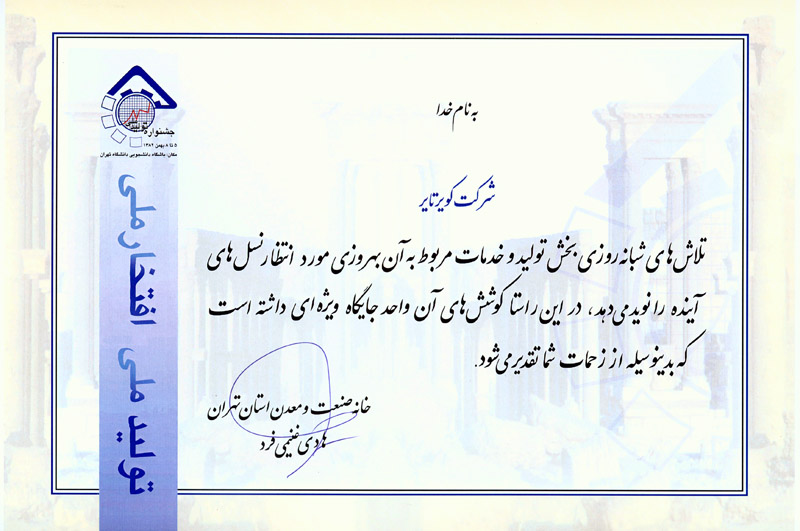 به نام خدا
جشنواره تولید ملی
۵ تا ۸ بهمن ۱۳۸۲
مکان: باشگاه دانشجویی دانشگاه تهران
شرکت کویر تایر
تلاش های شبانه روزی بخش تولید و خدمات مربوط به آن بهروزی مورد انتظار نسل های
آینده را نوید می دهد، در این راستا کوشش های آن واحد جایگاه ویژه ای داشته است
که بدینوسیله از زحمات شما تقدیر می شود.
خانه صنعت و معدن استان تهران
هادی غنیمی فرد
تولید ملی افتخار ملی